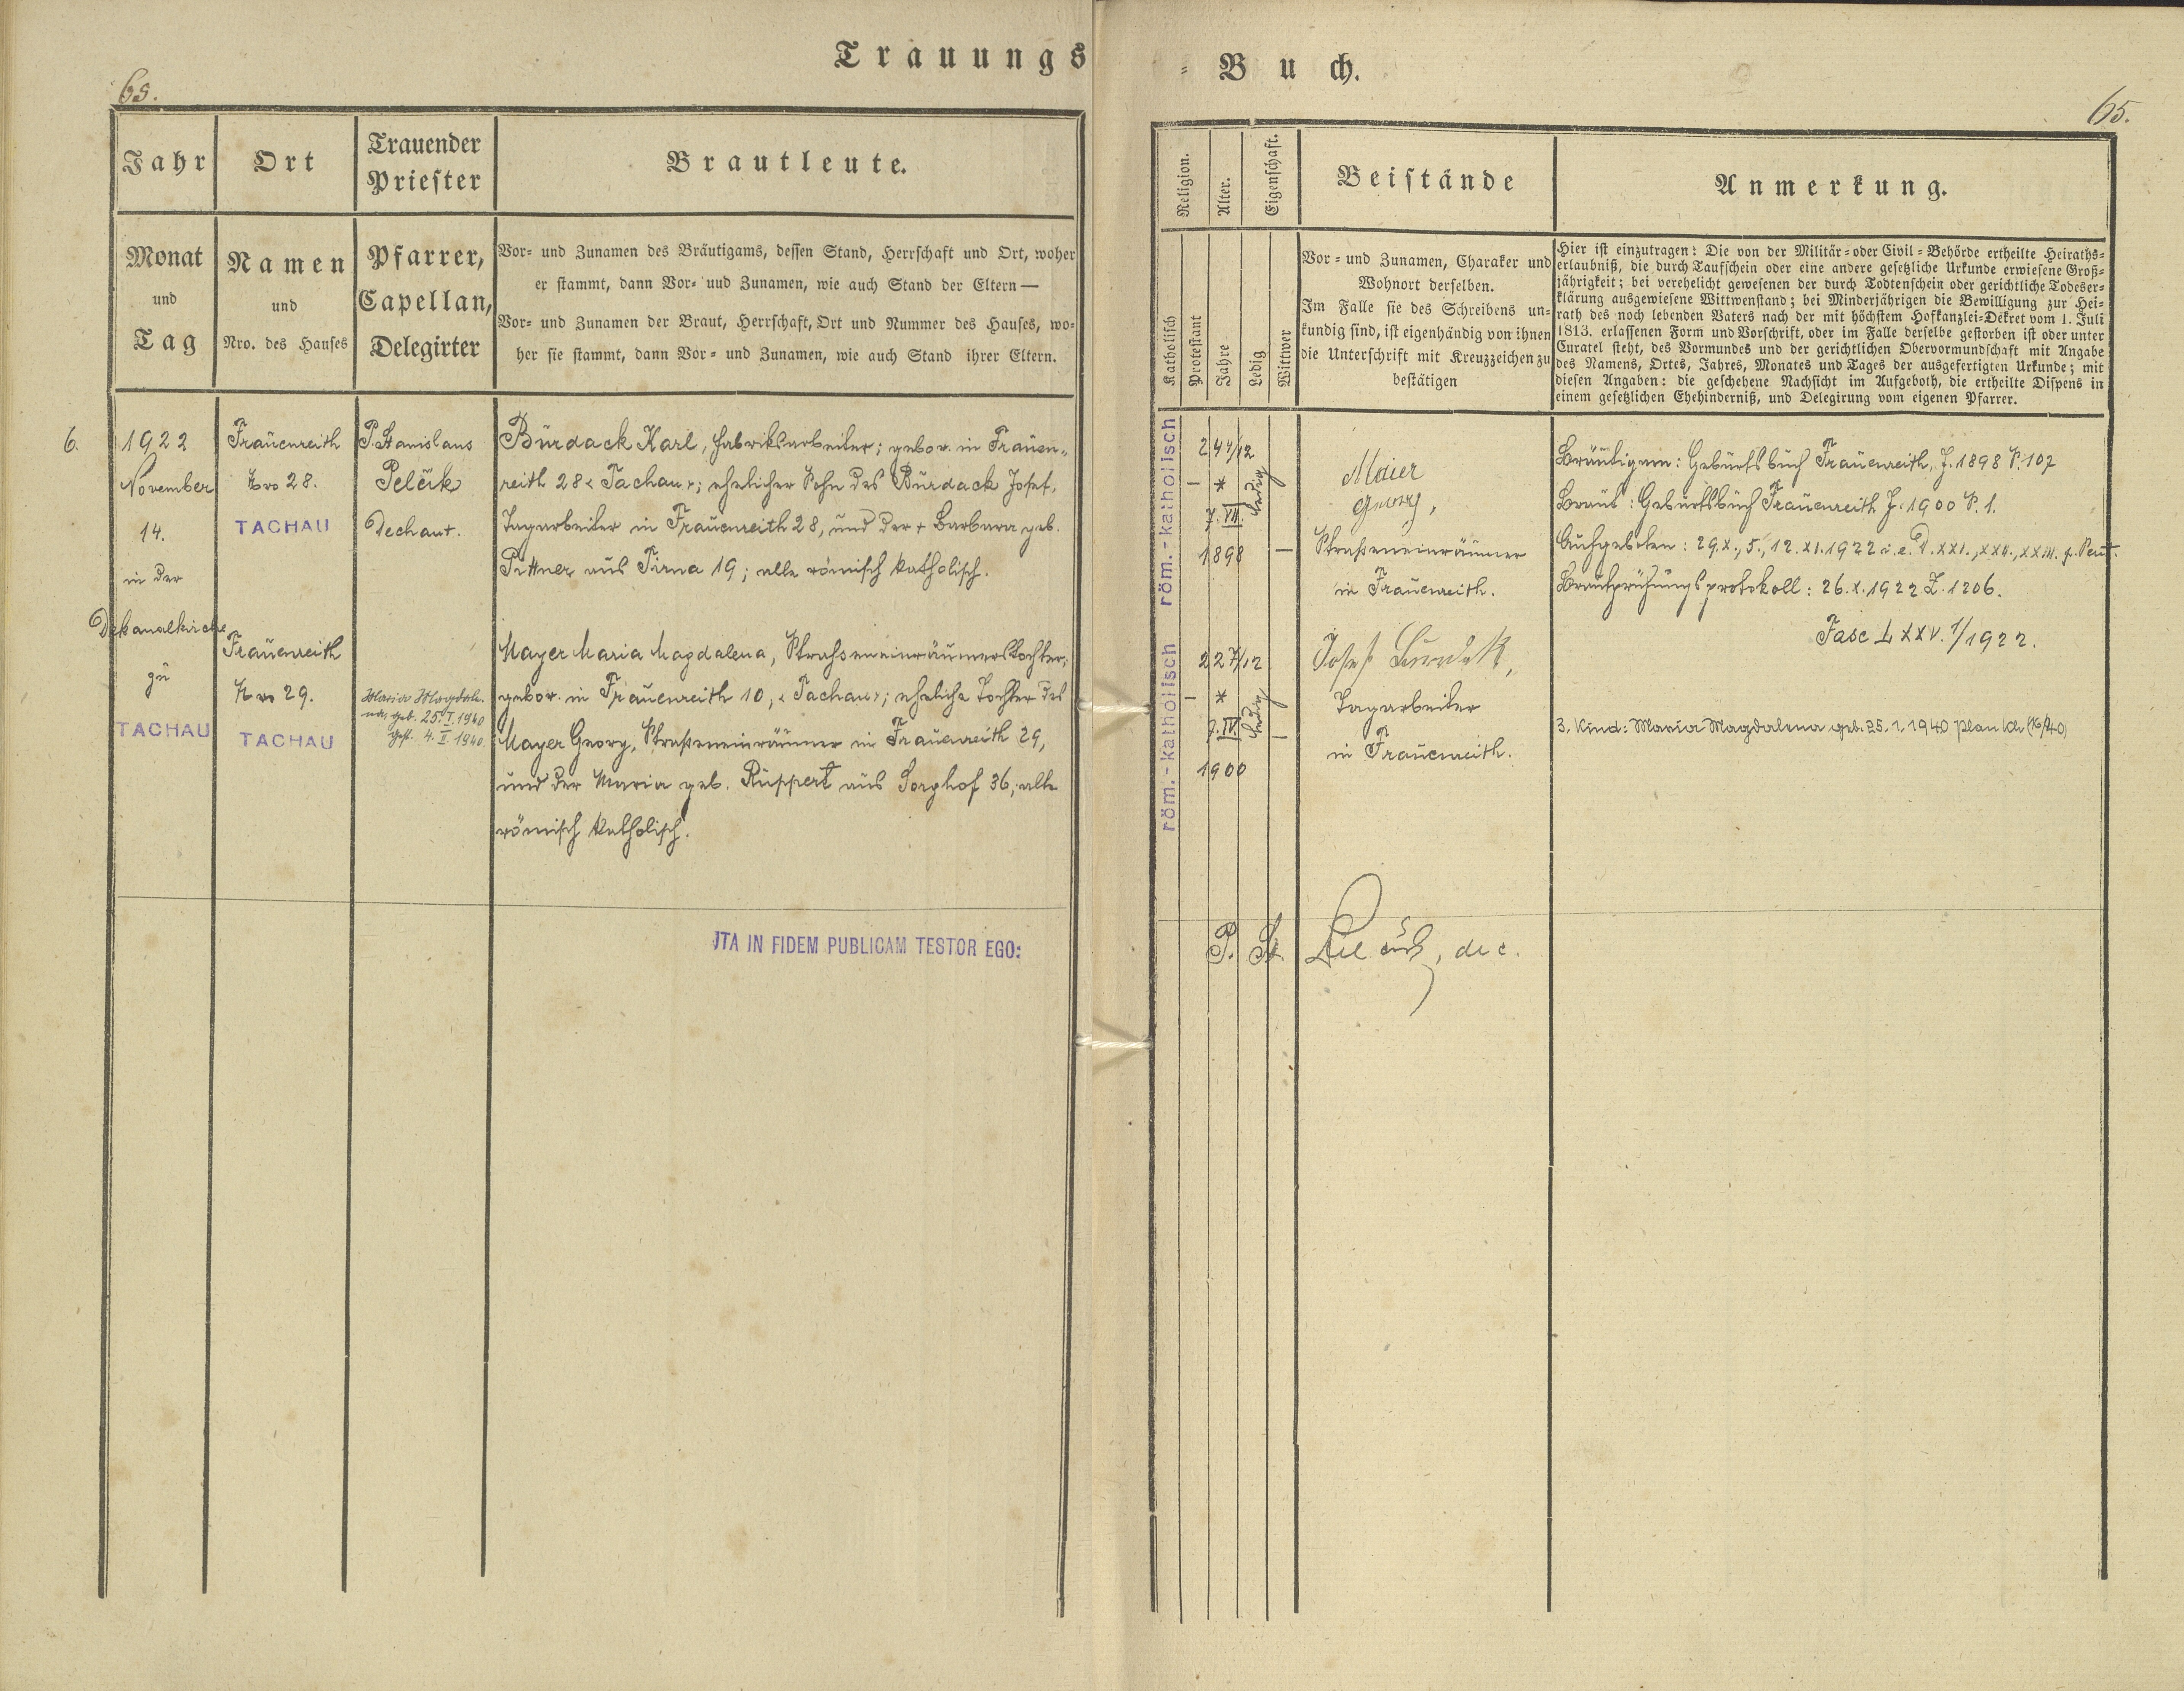 Trauungs
= Buch.
65.
65.
Jahr
Ort
Trauender
Priester
Brautleute.
Religion.
Alter.
Eigenschaft.
Beistände
Anmerkung.
Monat
und
Tag
Namen
und
Nro. des Hauses
Pfarrer,
Capellan,
Delegirter
Vor- und Zunamen des Bräutigams, dessen Stand, Herrschaft und Ort, woher
er stammt, dann Vor- uud Zunamen, wie auch Stand der Eltern —
Vor- und Zunamen der Braut, Herrschaft, Ort und Nummer des Hauses, wo-
her sie stammt, dann Vor- und Zunamen, wie auch Stand ihrer Eltern.
Katholisch
Protestant
Jahre
Ledig
Wittwer
Vor- und Zunamen, Charaker und
Wohnort derselben.
Im Falle sie des Schreibens un-
kundig sind, ist eigenhändig von ihnen
die Unterschrift mit Kreuzzeichen zu
bestätigen
Hier ist einzutragen: Die von der Militär- oder Civil-Behörde ertheilte Heiraths-
erlaubniß, die durch Taufschein oder eine andere gesetzliche Urkunde erwiesene Groß-
jährigkeit; bei verehelicht gewesenen der durch Todtenschein oder gerichtliche Todeser-
klärung ausgewiesene Wittwenstand; bei Minderjährigen die Bewilligung zur Hei-
rath des noch lebenden Vaters nach der mit höchstem Hofkanzlei-Dekret vom 1. Juli
1813. erlassenen Form und Vorschrift, oder im Falle derselbe gestorben ist oder unter
Curatel steht, des Vormundes und der gerichtlichen Obervormundschaft mit Angabe
des Namens, Ortes, Jahres, Monates und Tages der ausgefertigten Urkunde; mit
diesen Angaben: die geschehene Nachsicht im Aufgeboth, die ertheilte Dispens in
einem gesetzlichen Ehehinderniß, und Delegirung vom eigenen Pfarrer.
6.
1922
November
14.
in der
Dekanalkirche
zu
TACHAU
Frauenreith
Nro 28.
TACHAU
Frauenreith
Nro 29.
TACHAU
P. Stanislaus
Pelčik
Dechant.
Maria Magdale-
na, geb. 25. I. 1940
get. 4. II. 1940.
Burdack Karl, Fabriksarbeiter; gebor. in Frauen-
reith 28 < Tachau >; ehelicher Sohn des Burdack Josef,
Tagarbeiter in Frauenreith 28, und der + Barbara geb.
Pittner aus Pirna 19; alle römisch katholisch.
Mayer Maria Magdalena, Strasseneinräumerstochter;
gebor. in Frauenreith 10, < Tachau >; eheliche Tochter des
Mayer Georg, Strasseneinräumer in Frauenreith 29,
und der Maria geb. Ruppert aus Sorghof 36; alle
römisch katholisch.
JTA IN FIDEM PUBLICAM TESTOR EGO:
röm.-katholisch
—
24 4/12
*
7. VII.
1898
ledig
—
röm.-katholisch
—
22 7/12
*
7. IV.
1900
ledig
—
Maier
Georg,
Straßeneinräumer
in Frauenreith.
Josef Burdak,
Tagarbeiter
in Frauenreith.
P. St. Pelčik, dec.
Bräutigam: Geburtsbuch Frauenreith, J. 1898 S. 107
Braut: Geburtsbuch Frauenreith J. 1900 S. 1.
Aufgeboten: 29. X., 5., 12. XI. 1922 i. e. D. XXI., XXII., XXIII. p. Pent.
Brautprüfungsprotokoll: 26. X. 1922 Z. 1206.
Fasc LXXV. 1/1922.
3. Kind: Maria Magdalena geb. 25. 1. 1940 Plan (16/40)